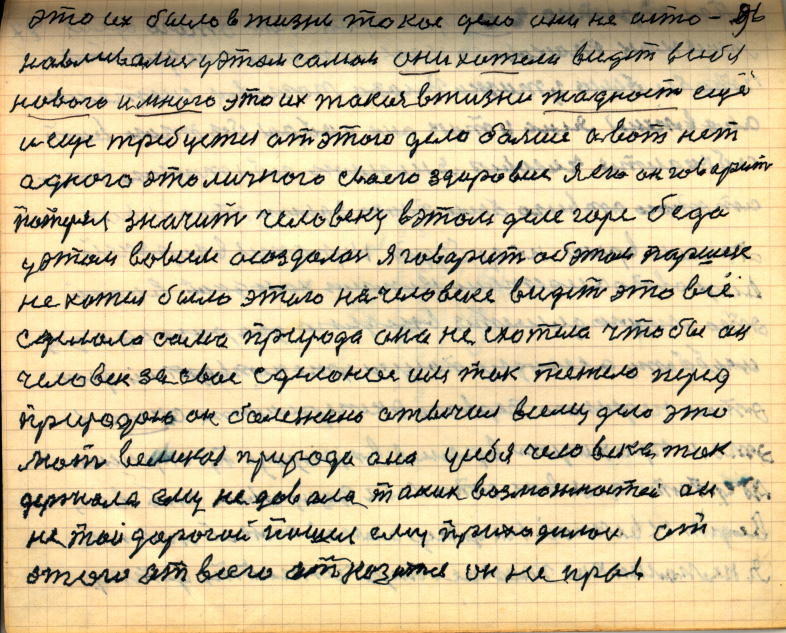 это их было в жизни такое дело они не оста- 96
навливались у этом самом они хотели видит в себя
нового и много это их такая в жизни жадност ещё
и еще требуется от этого дело больше а вот нет
адного это личного своего здоровия я его он говорит
потерял значит человеку в этом деле горе беда
у этом вовсем создалась я говорит об этом паршек
не хотел было этого на человеке видет это всё
сделала сама природа она не схотела чтобы он
человек за свое сделоное им так тежело перед
природою он болезнено отвичал всему дело это
мат великая природа она у себя человека так
держала ему не давала таких возможностей он
не той дорогой пошел ему приходилос от
этого от всего отказатся он не прав